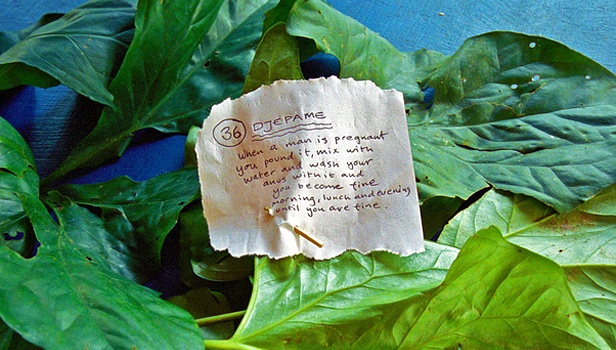 36 DJEPAME
When a man is pregnant
you pound it, mix with
water and wash your
anus with it and
you become fine
morning, lunch and evening
until you are fine.